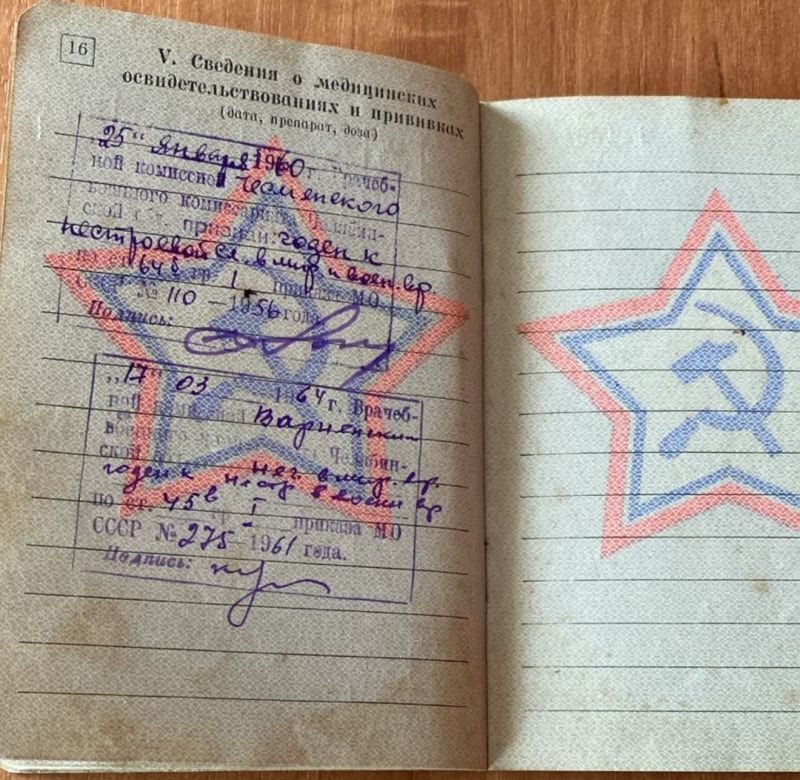 16
V. Сведения о медицинских
освидетельствованиях и прививках
(дата, препарат, доза)
„25“ января 1960 г. Врачеб-
ной комиссией Чесменского
военного комиссариата Челябин-
ской обл. признан: годен к
нестроевой сл. в мир и воен. вр.
по ст. 64 в гр. I приказа МО
№ 110 – 1956 года
Подпись:
„17“ 03 1964 г. Врачеб-
ной комиссией Варненским
военного Челябин-
ской
годен к нестр в воен вр
по ст. 45 в гр I приказа МО
СССР № 275 1961 года.
Подпись: